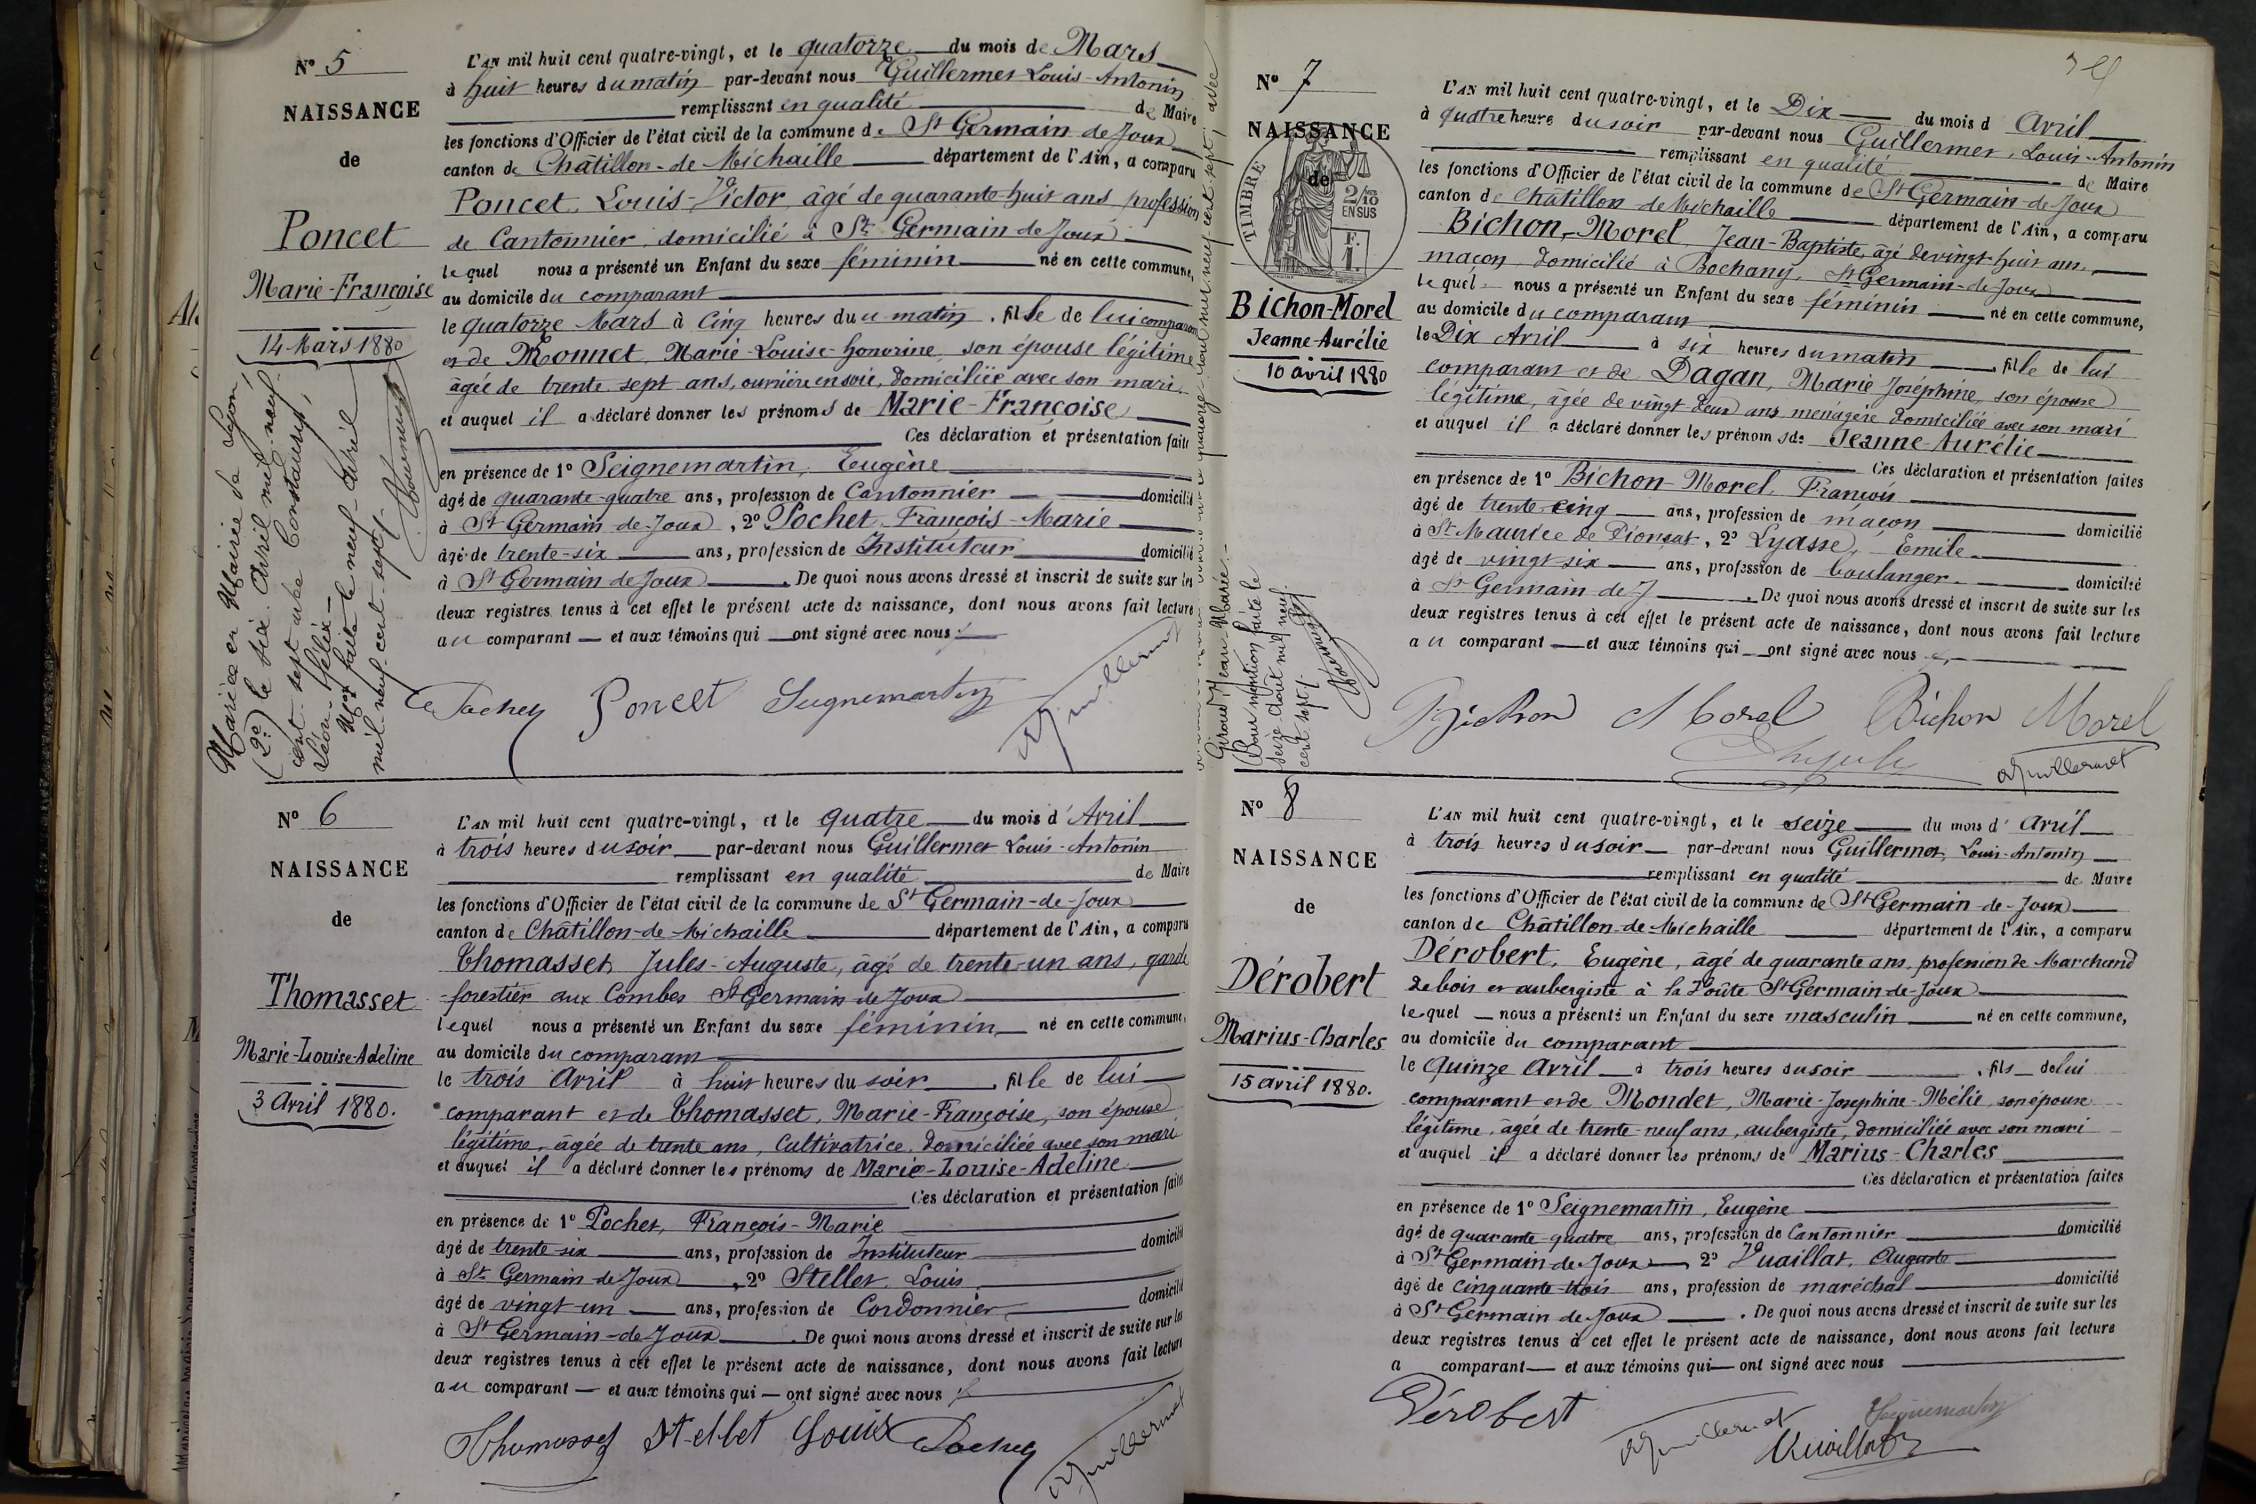 N° 5
NAISSANCE
de
Poncet
Marie-Françoise
14 Mars 1880
Mariée en Mairie de Lyon,
(2e) le six Avril mil neuf
cent sept avec Constantin,
Léon-Félix
Mon faite le neuf Avril
mil neuf cent sept.
L'AN mil huit cent quatre-vingt, et le quatorze du mois de Mars
à huit heures du matin par-devant nous Guillermet Louis-Antonin
remplissant en qualité de Maire
les fonctions d'Officier de l'état civil de la commune de St Germain de Joux
canton de Châtillon-de-Michaille département de l'Ain, a comparu
Poncet, Louis-Victor, âgé de quarante-huit ans, profession
de Cantonnier, domicilié à St Germain de Joux
lequel nous a présenté un Enfant du sexe féminin né en cette commune,
au domicile du comparant
le quatorze Mars à cinq heures du matin, fille de lui comparant
et de Monnet, Marie-Louise-honorine, son épouse légitime
âgée de trente sept ans, ouvrière en soie, domiciliée avec son mari
et auquel il a déclaré donner les prénoms de Marie-Françoise
Ces déclaration et présentation faites
en présence de 1° Seignemartin, Eugène
âgé de quarante-quatre ans, profession de Cantonnier domicilié
à St Germain de Joux, 2° Pochet, François-Marie
âgé de trente-six ans, profession de Instituteur domicilié
à St Germain de Joux. De quoi nous avons dressé et inscrit de suite sur les
deux registres tenus à cet effet le présent acte de naissance, dont nous avons fait lecture
au comparant et aux témoins qui ont signé avec nous
Pochet Poncet Seignemartin
Guillermet
N° 6
NAISSANCE
de
Thomasset
Marie-Louise-Adeline
3 Avril 1880.
L'AN mil huit cent quatre-vingt, et le quatre du mois d'Avril
à trois heures du soir par-devant nous Guillermet Louis-Antonin
remplissant en qualité de Maire
les fonctions d'Officier de l'état civil de la commune de St Germain-de-Joux
canton de Châtillon-de-Michaille département de l'Ain, a comparu
Thomasset, Jules-Auguste, âgé de trente-un ans, garde
forestier aux Combes St Germain de Joux
lequel nous a présenté un Enfant du sexe féminin né en cette commune,
au domicile du comparant
le trois Avril à huit heures du soir, fille de lui
comparant et de Thomasset, Marie-Françoise, son épouse
légitime, âgée de trente ans, Cultivatrice, domiciliée avec son mari
et auquel il a déclaré donner les prénoms de Marie-Louise-Adeline
Ces déclaration et présentation faites
en présence de 1° Pochet, François-Marie
âgé de trente-six ans, profession de Instituteur domicilié
à St Germain-de-Joux, 2° Stellet, Louis
âgé de vingt-un ans, profession de Cordonnier, domicilié
à St Germain-de-Joux. De quoi nous avons dressé et inscrit de suite sur les
deux registres tenus à cet effet le présent acte de naissance, dont nous avons fait lecture
au comparant et aux témoins qui ont signé avec nous
Thomasset Stellet Louis Pochet
Guillermet
N° 7
NAISSANCE
de
TIMBRE
2/10
EN SUS
F.
1.
Bichon-Morel
Jeanne-Aurélie
10 avril 1880
Giroud Jean Marie.
Pour mention faite le
seize Août mil neuf
cent sept.
L'AN mil huit cent quatre-vingt, et le Dix du mois d Avril
à quatre heures du soir par-devant nous Guillermet, Louis-Antonin
remplissant en qualité de Maire
les fonctions d'Officier de l'état civil de la commune de St Germain-de-Joux
canton de Châtillon de Michaille département de l'Ain, a comparu
Bichon-Morel, Jean-Baptiste, âgé de vingt-huit ans,
maçon domicilié à Bochany, St Germain-de-Joux
lequel nous a présenté un Enfant du sexe féminin né en cette commune,
au domicile du comparant
le Dix Avril à six heures du matin, fille de lui
comparant et de Dagan, Marie Joséphine, son épouse
légitime, âgée de vingt deux ans ménagère domiciliée avec son mari
et auquel il a déclaré donner les prénoms de Jeanne-Aurélie
Ces déclaration et présentation faites
en présence de 1° Bichon-Morel, François
âgé de trente cinq ans, profession de maçon domicilié
à St Maurice de Pionsat, 2° Lyasse, Emile
âgé de vingt-six ans, profession de boulanger domicilié
à St Germain de J. De quoi nous avons dressé et inscrit de suite sur les
deux registres tenus à cet effet le présent acte de naissance, dont nous avons fait lecture
au comparant et aux témoins qui ont signé avec nous
Bichon Morel Bichon Morel
Guillermet
N° 8
NAISSANCE
de
Dérobert
Marius-Charles
15 avril 1880.
L'AN mil huit cent quatre-vingt, et le seize du mois d'avril
à trois heures du soir par-devant nous Guillermet, Louis-Antonin
remplissant en qualité de Maire
les fonctions d'Officier de l'état civil de la commune de St Germain-de-Joux
canton de Châtillon-de-Michaille département de l'Ain, a comparu
Dérobert, Eugène, âgé de quarante ans, profession de Marchand
de bois et aubergiste à la Voûte St Germain-de-Joux
lequel nous a présenté un Enfant du sexe masculin né en cette commune,
au domicile du comparant
le Quinze Avril à trois heures du soir, fils de lui
comparant et de Mondet, Marie-Josephine-Mélie, son épouse
légitime, agée de trente-neuf ans, aubergiste, domiciliée avec son mari
et auquel il a déclaré donner les prénoms de Marius-Charles
Ces déclaration et présentation faites
en présence de 1° Seignemartin, Eugène
âgé de quarante-quatre ans, profession de Cantonnier domicilié
à St Germain-de-Joux 2° Vuaillat, Auguste
âgé de cinquante trois ans, profession de maréchal domicilié
à St Germain de Joux. De quoi nous avons dressé et inscrit de suite sur les
deux registres tenus à cet effet le présent acte de naissance, dont nous avons fait lecture
a comparant et aux témoins qui ont signé avec nous
Dérobert Guillermet Seignemartin
Vuaillat